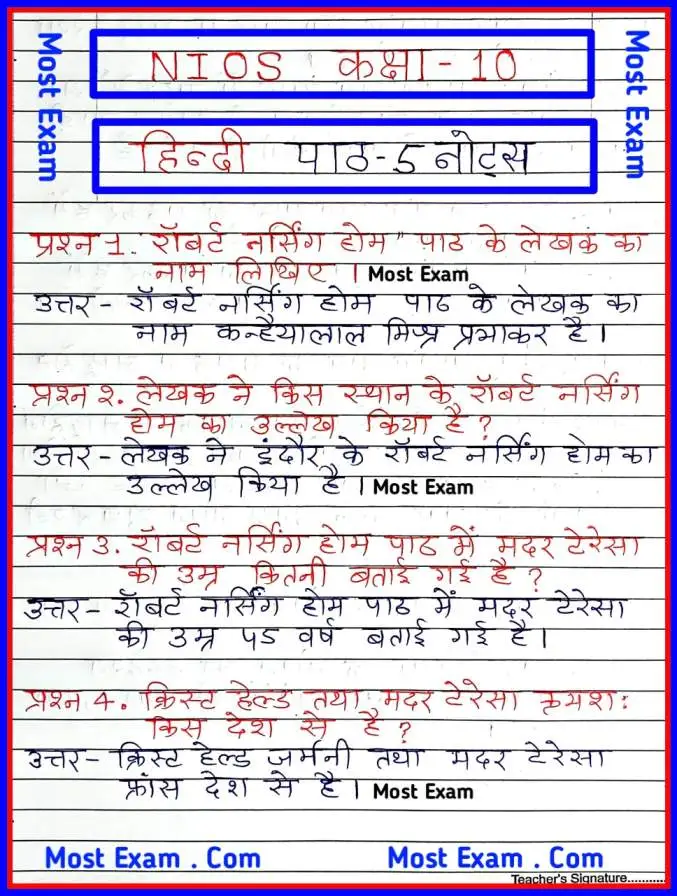 Most Exam
NIOS कक्षा - 10
Most Exam
हिन्दी पाठ-5 नोट्स
प्रश्न 1. रॉबर्ट नर्सिंग होम" पाठ के लेखक का
नाम लिखिए । Most Exam
उत्तर - रॉबर्ट नर्सिंग होम पाठ के लेखक का
नाम कन्हैयालाल मिश्र प्रभाकर है ।
प्रश्न २. लेखक ने किस स्थान के रॉबर्ट नर्सिंग
होम का उल्लेख किया है ?
उत्तर - लेखक ने इंदौर के रॉबर्ट नर्सिंग होम का
उल्लेख किया है । Most Exam
प्रश्न 3. रॉबर्ट नर्सिंग होम पाठ में मदर टेरेसा
की उम्र कितनी बताई गई है ?
उत्तर - रॉबर्ट नर्सिंग होम पाठ में मदर टेरेसा
की उम्र ५5 वर्ष बताई गई है ।
प्रश्न 4. क्रिस्ट हेल्ड तथा मदर टेरेसा क्रमश:
किस देश से है ?
उत्तर - क्रिस्ट हेल्ड जर्मनी तथा मदर टेरेसा
फ्रांस देश से है । Most Exam
Most Exam . Com Most Exam . Com
Teacher's Signature...........